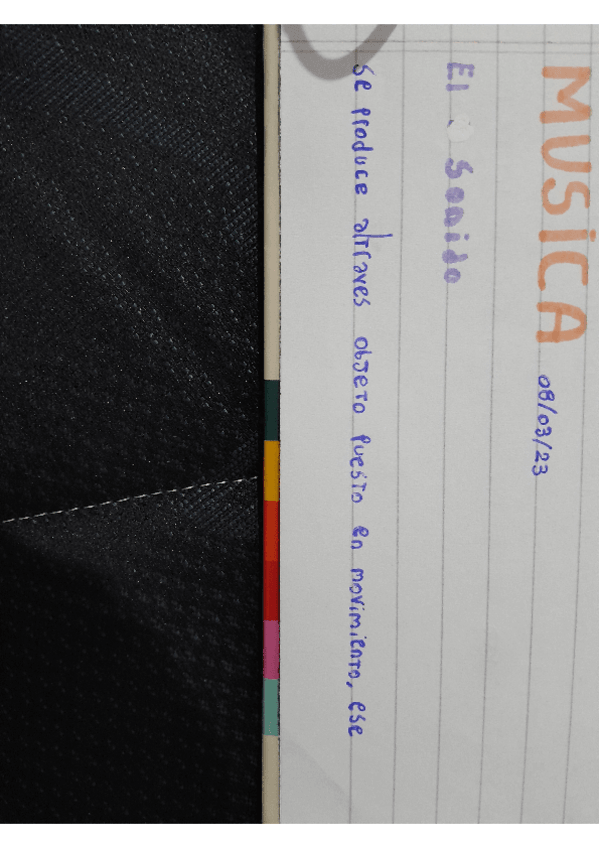 MUSICA 08/03/23
El Sonido
Se produce atraves objeto puesto en movimiento, ese